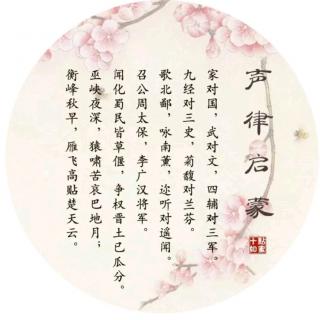 声律启蒙
家对国，武对文，四辅对三军。
九经对三史，菊馥对兰芬。
歌北鄙，咏南薰，迩听对遥闻。
召公周太保，李广汉将军。
闻化蜀民皆草偃，争权晋土已瓜分。
巫峡夜深，猿啸苦哀巴地月；
衡峰秋早，雁飞高贴楚天云。